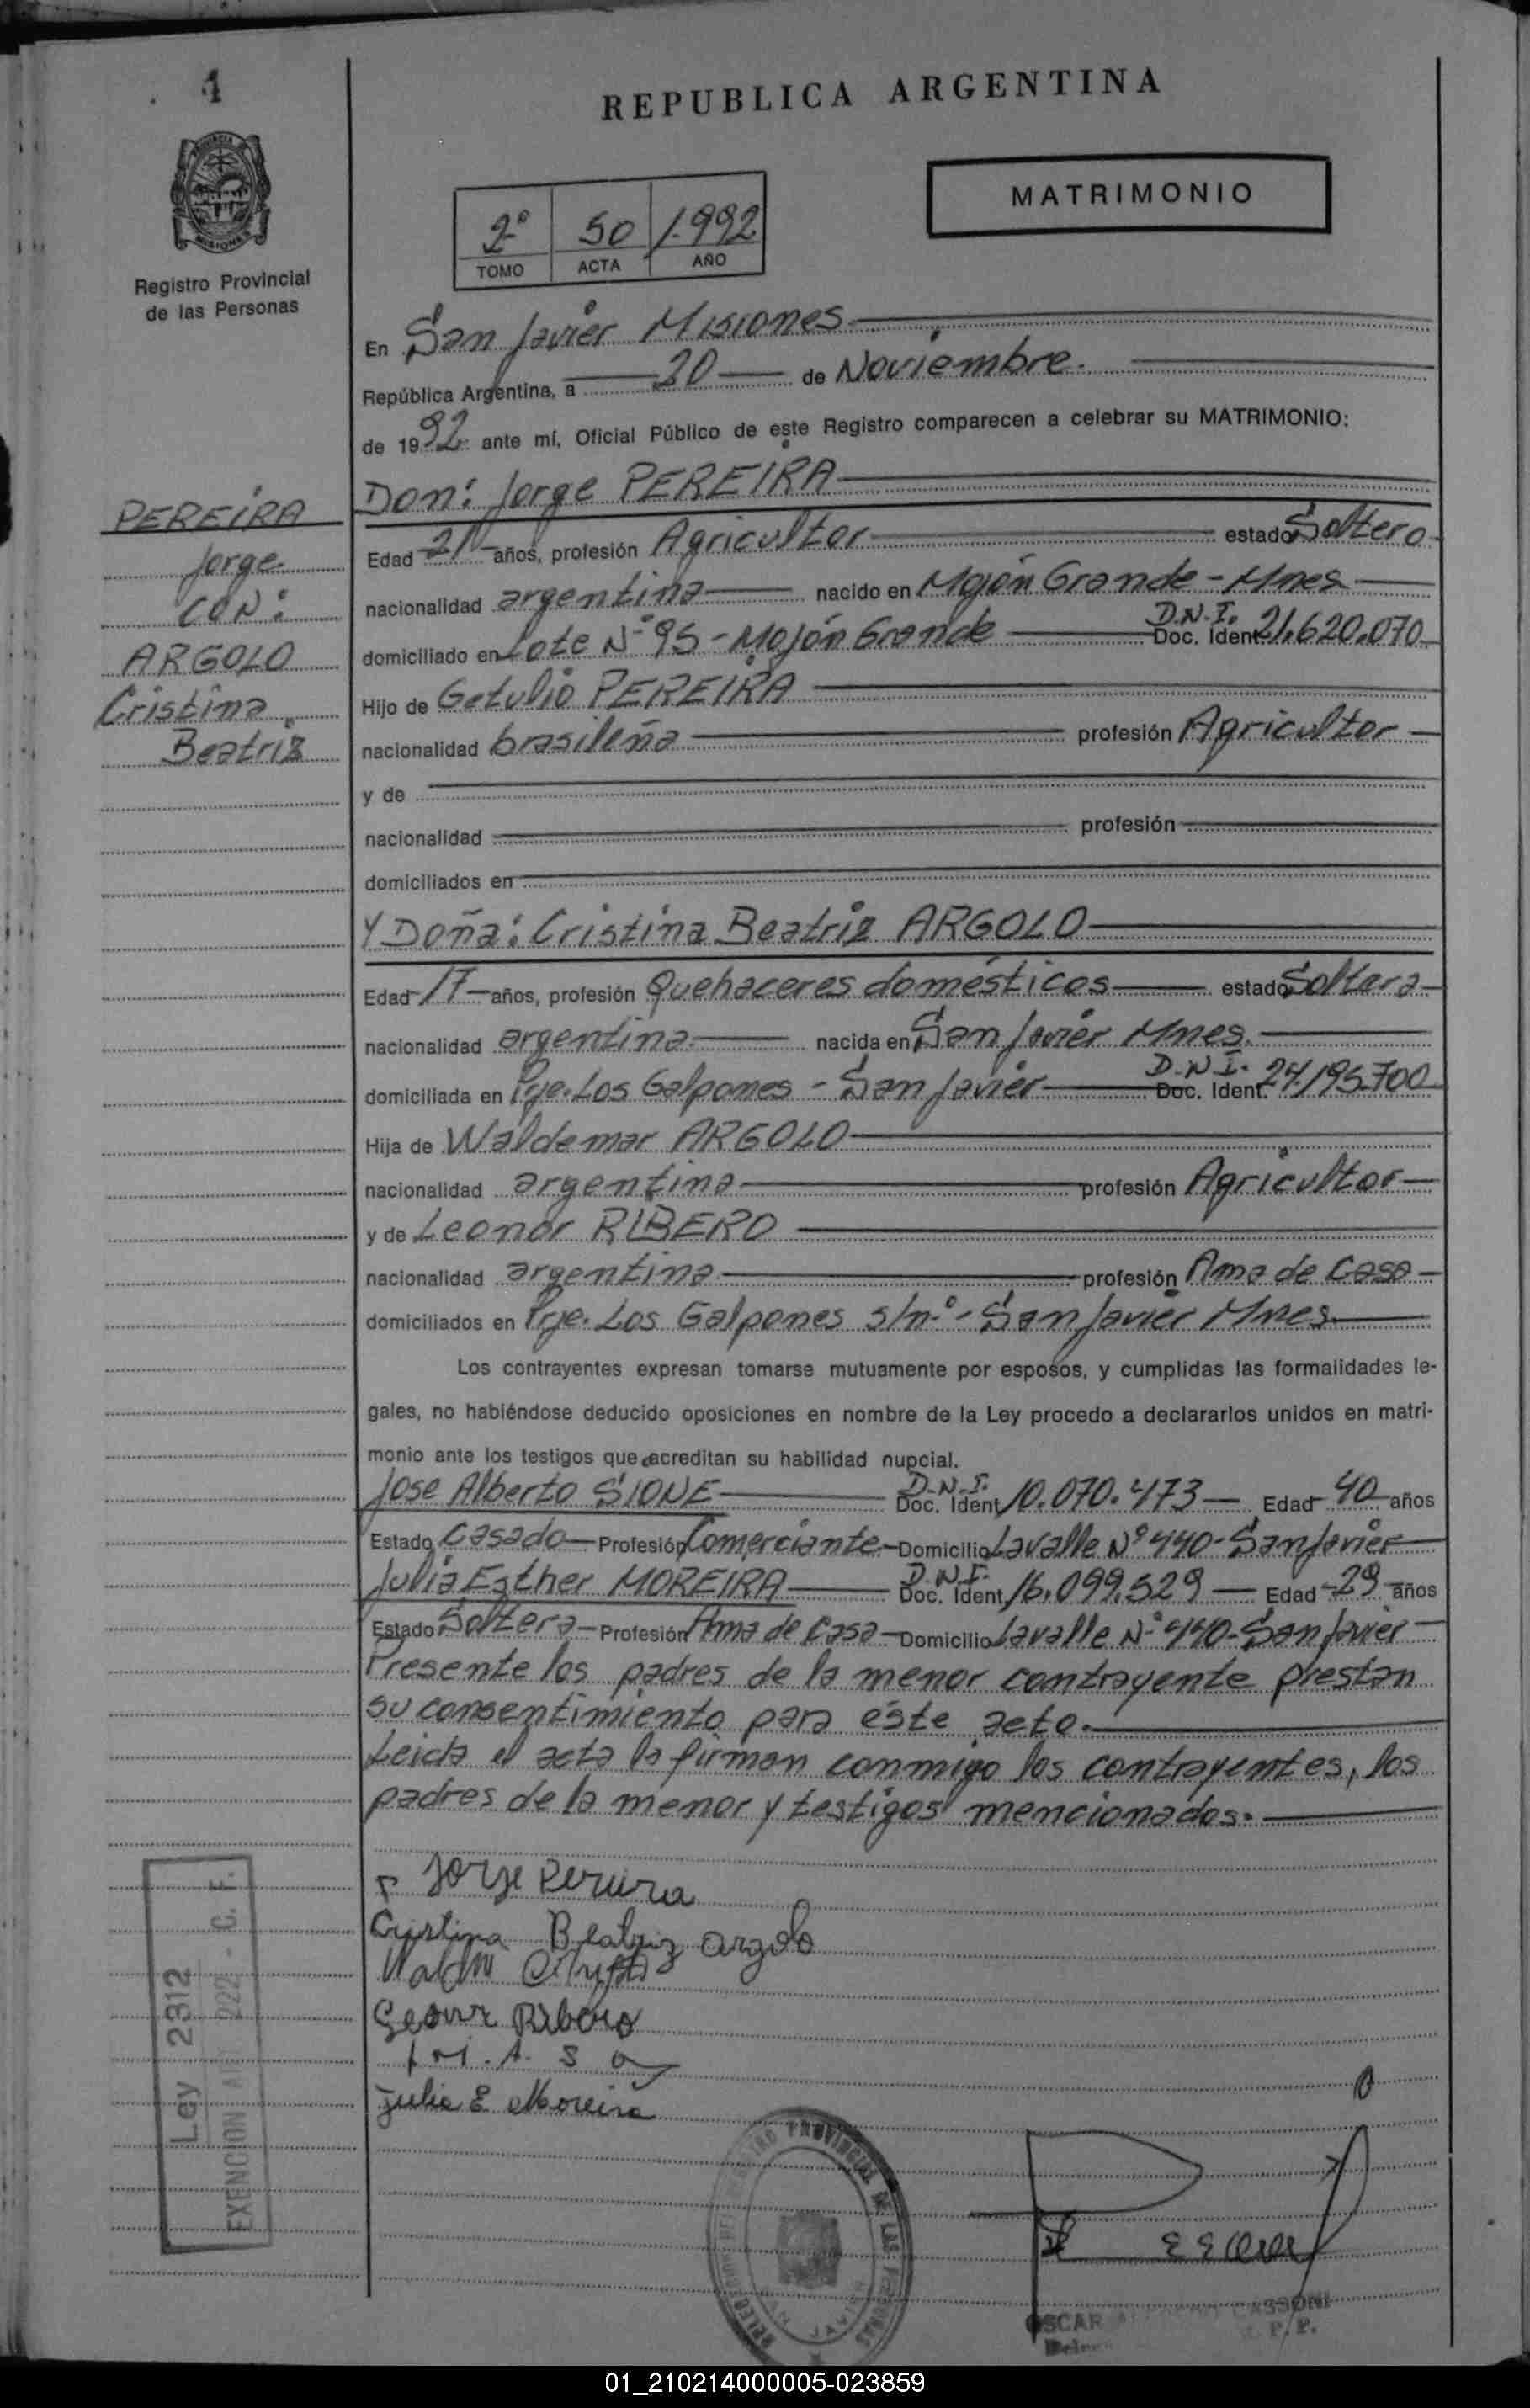 1
REPUBLICA ARGENTINA
MATRIMONIO
2º 50 1.992
TOMO ACTA AÑO
Registro Provincial
de las Personas
En San Javier Misiones
República Argentina, a 20 de Noviembre.
de 1992 ante mí, Oficial Público de este Registro comparecen a celebrar su MATRIMONIO:
PEREIRA
Jorge
CON:
ARGOLO
Cristina
Beatriz
Don: Jorge PEREIRA
Edad 21 años, profesión Agricultor estado Soltero
nacionalidad argentina nacido en Mojón Grande - Mnes
domiciliado en Lote Nº 95 - Mojón Grande D.N.I. Doc. Ident. 21.620.070
Hijo de Getulio PEREIRA
nacionalidad brasileña profesión Agricultor
y de
nacionalidad profesión
domiciliados en
Y Doña: Cristina Beatriz ARGOLO
Edad 17 años, profesión Quehaceres domésticos estado Soltera
nacionalidad argentina nacida en San Javier Mnes.
domiciliada en Pje. Los Galpones - San Javier D.N.I. Doc. Ident. 24.195.700
Hija de Waldemar ARGOLO
nacionalidad argentina profesión Agricultor
y de Leonor RIBERO
nacionalidad argentina profesión Ama de Casa
domiciliados en Pje. Los Galpones s/nº - San Javier Mnes
Los contrayentes expresan tomarse mutuamente por esposos, y cumplidas las formalidades le-
gales, no habiéndose deducido oposiciones en nombre de la Ley procedo a declararlos unidos en matri-
monio ante los testigos que acreditan su habilidad nupcial.
Jose Alberto SIONE D.N.I. Doc. Ident 10.070.473 Edad 40 años
Estado Casado Profesión Comerciante Domicilio Lavalle Nº 440 - San Javier
Julia Esther MOREIRA D.N.I. Doc. Ident 16.099.529 Edad 29 años
Estado Soltera Profesión Ama de Casa Domicilio Lavalle Nº 440 - San Javier
Presente los padres de la menor contrayente prestan
su consentimiento para éste acto.
Leida el acta la firman conmigo los contrayentes, los
padres de la menor y testigos mencionados.
Jorge Pereira
Cristina Beatriz Argolo
Ribero
Julia E Moreira
Ley 2312
EXENCION ART 222 - C. F.
REGISTRO PROVINCIAL DE LAS PERSONAS
OSCAR CASSONI
01_210214000005-023859